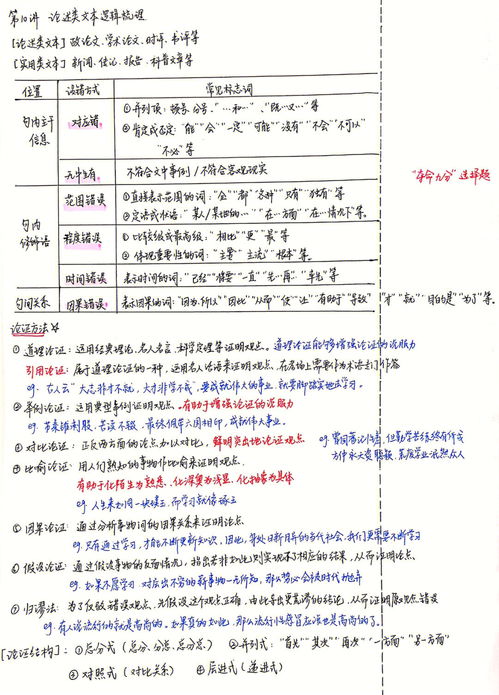 第10讲 论述类文本逻辑梳理
[论述类文本] 政论文、学术论文、时评、书评等
[实用类文本] 新闻、传记、报告、科普文章等
位置 误错方式 常见标志词
句内主干信息 对应错 ①并列项：顿号、分号、"…和…"、"既…又…"等
②肯定或否定："能""会""一定""可能""没有""不会""不可以"
"不必"等
无中生有 不符合文中事例/不符合客观现实
句内修饰语 范围错误 ①直接表示范围的词："全""都""各种""只有""独有"等
②定语或状语："某人/某地的…""在…方面""在…情况下"等。
程度错误 ①比较级或最高级："相比""更""最"等
②体现重要性的词："主要""主流""根本"等。
时间错误 表示时间的词："已经""将要""一直""先…再""率先"等
句间关系 因果错误 表示因果的词："因为…所以""因此""从而""使""让""有助于""导致" "才""就""目的是""为了"等。
"夺命九分"选择题
论证方法☆
①道理论证：运用经典理论、名人名言、科学定理等证明观点。道理论证能够增强论证的说服力
引用论证：属于道理论证的一种，运用名人话语来证明观点，在考场上需要作为术语去们作答
eg. 古人云"大志非才不就，大才非学不成"，要成就伟大的事业，就要脚踏实地去学习。
②举例论证：运用典型事例证明观点。有助于增强论证的说服力
eg. 苏秦锥刺股，苦读不辍，最终佩带六国相印，成就伟大事业。
③对比论证：正反两方面的论点加以对比，鲜明突出地论证观点
eg. 曾国藩
④比喻论证：用人们熟知的事物作比喻来证明观点
有助于化陌生为熟悉、化深奥为浅显、化抽象为具体
eg. 人生来如同一块璞玉，而学习就像琢玉
⑤因果论证：通过分析事物间的因果关系来证明论点
eg. 只有通过学习，才能不断更新知识，因此，身处日新月异的当代社会，我们更需要不断学习
⑥假设论证：通过假设事物的反面情况，指出若非如此则实现不了相应的结果，从而证明论点。
eg. 如果不愿学习，对层出不穷的新事物一无所知，那么势必会被时代抛弃
⑦归谬法：为了反驳错误观点，先假设这个观点正确，由此导出更荒谬的结论，从而证明原观点错误
eg. 有人说流行的就是高尚的，如果真的如此，那么流行性感冒应该也是高尚的了。
[论证结构]：①总分式（总分、分总、总分总） ②并列式："首先""其次""再次""一方面""另一方面"
③对照式（对比关系） ④层进式（递进式）